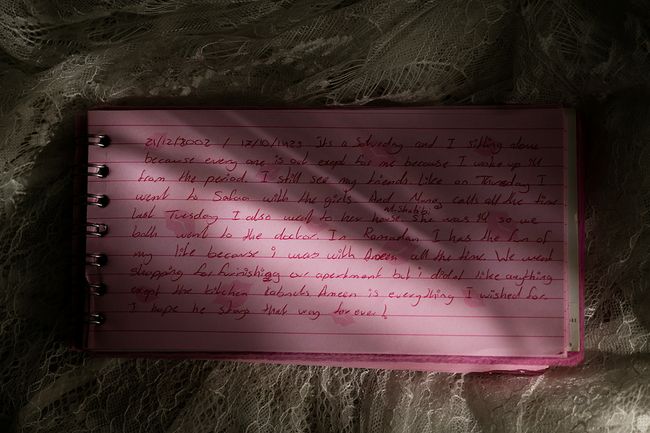 21/12/2002 / 17/10/1423 its a Saturday and I sitting alone
because every one is out exept for me because I wake up ill
from the period. I still see my friends. Like on Thursday I
went to Safaa with the girls And Muna calls all the time
Al-Shahbi
last Tuesday I also went to her house. She was ill so we
both went to the doctor. In Ramadan I has the fun of
my life because i was with Ameen all the time. We went
shopping for furnishing our apartment but i didnt like anything
exept the kitchen kabnats. Ameen is everything I wished for.
I hope he stays that way for ever!